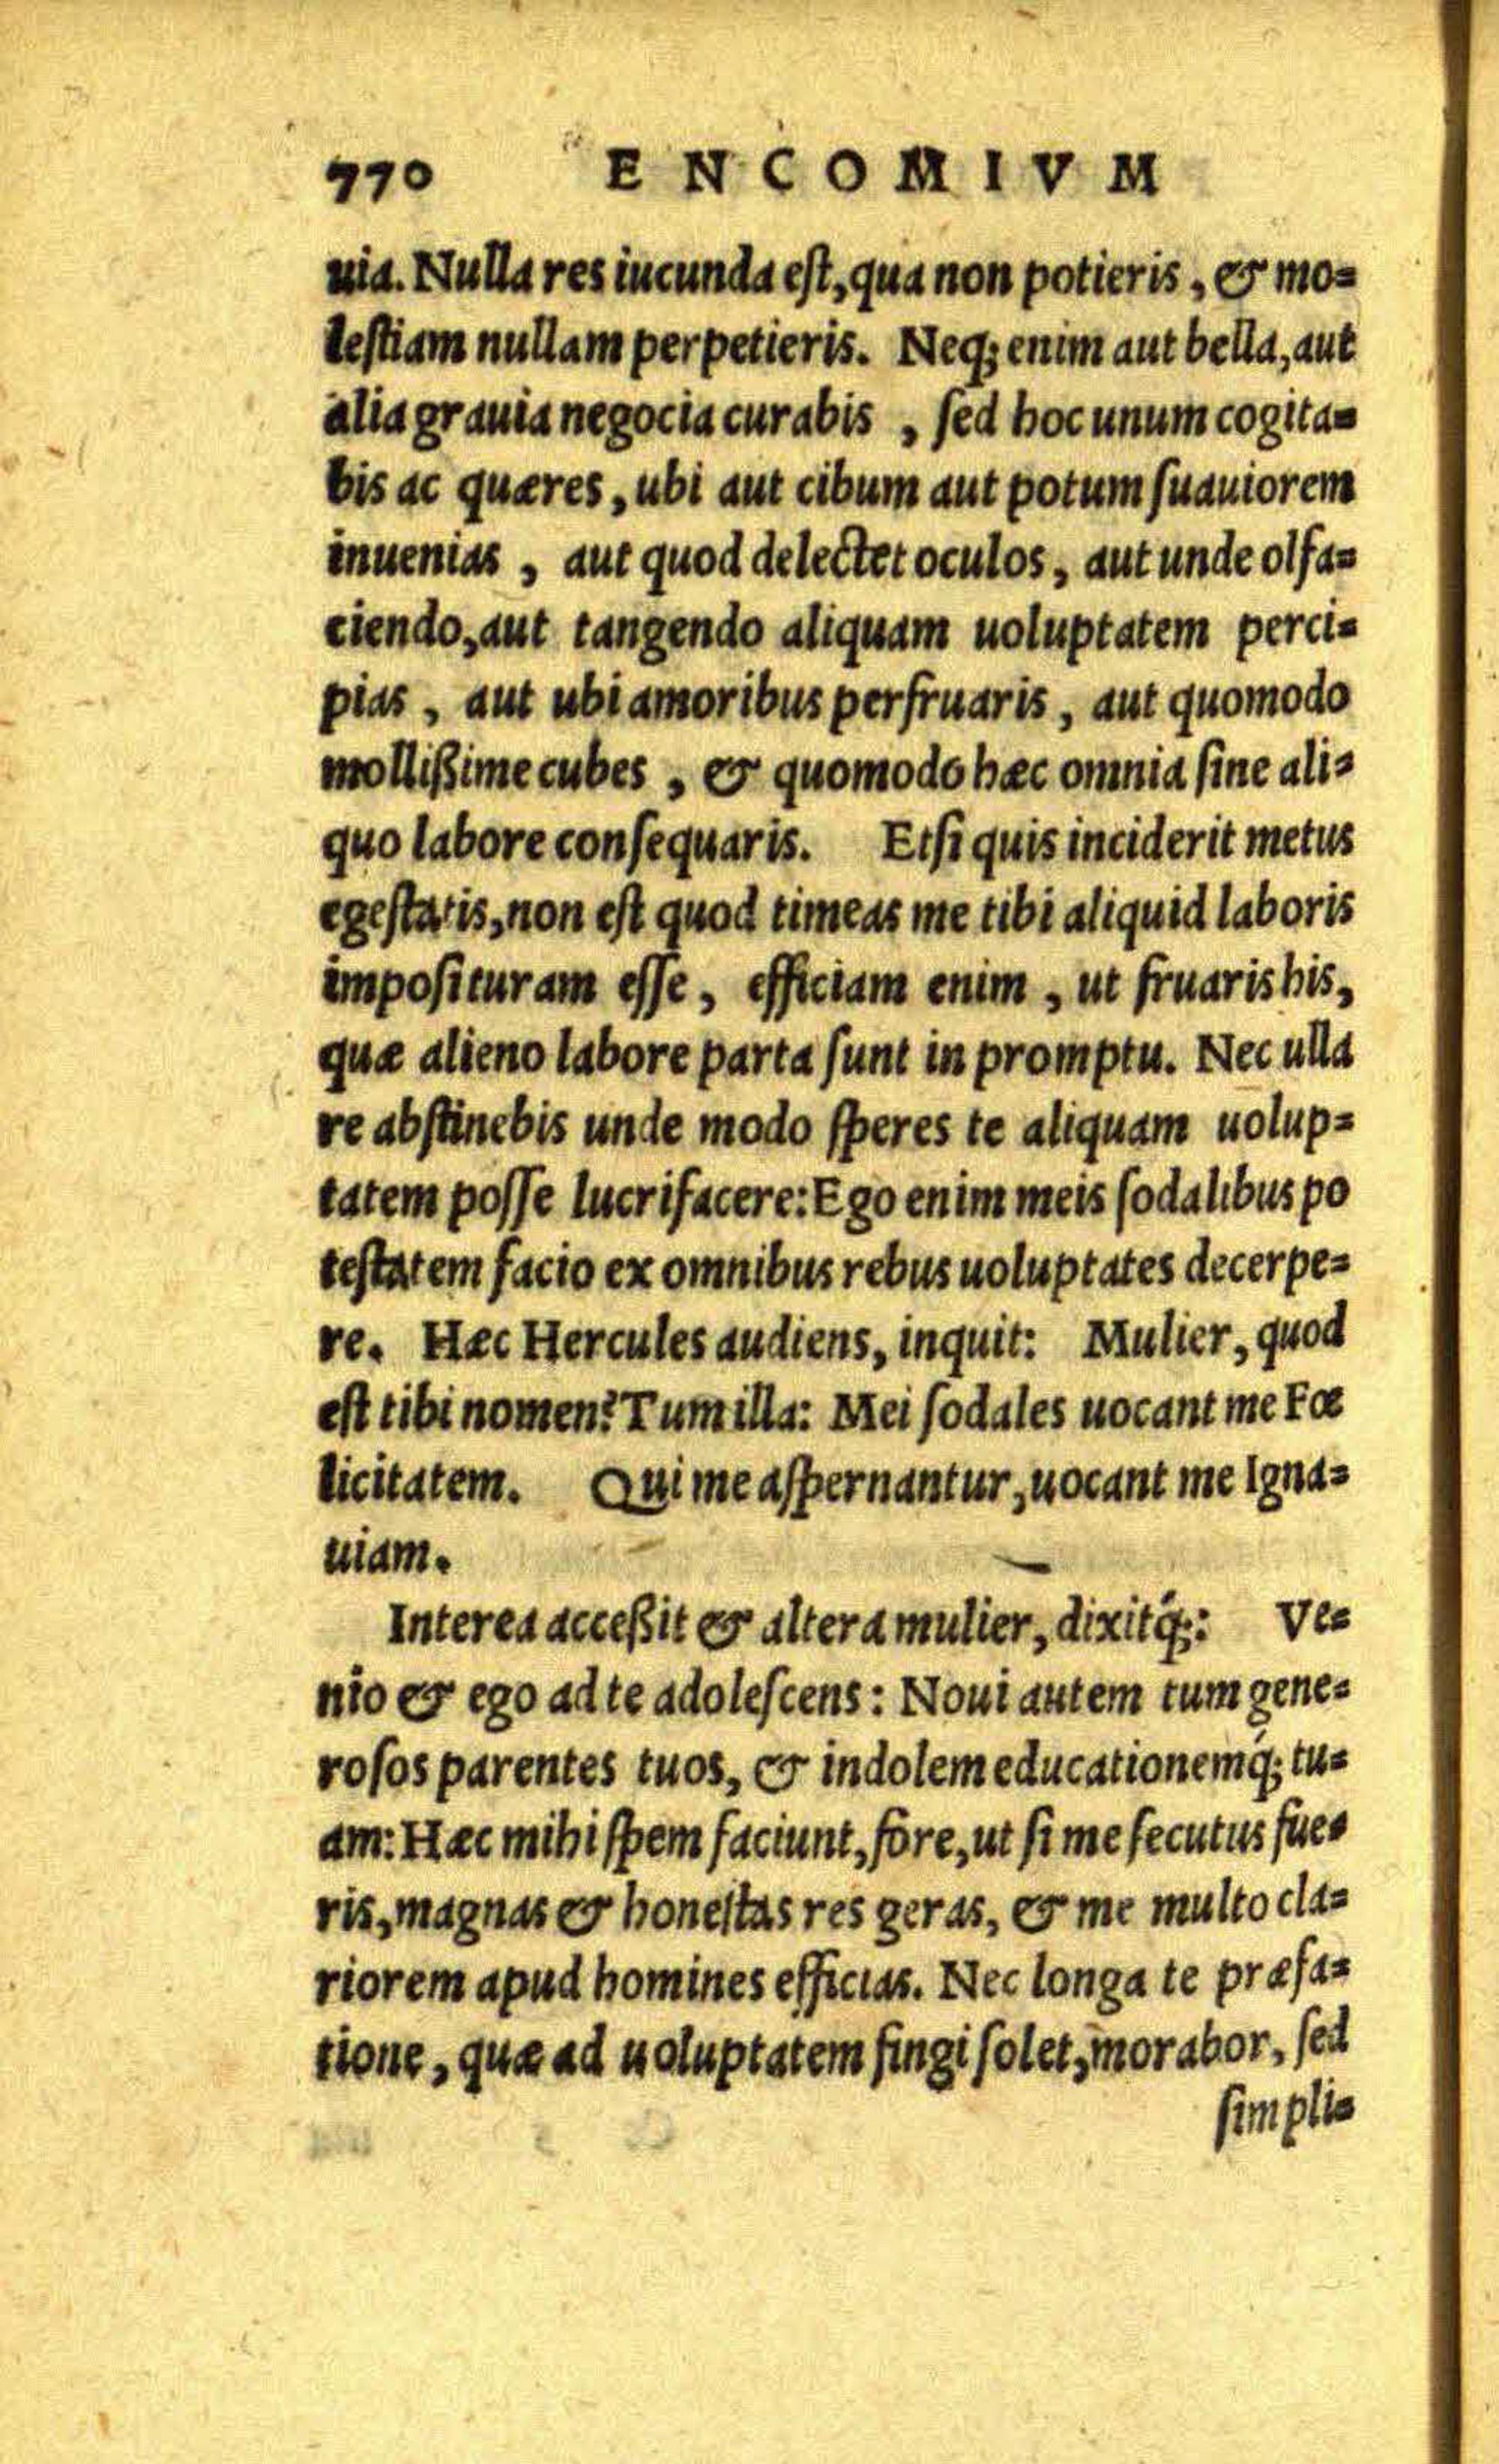 770 ENCOMIVM
uia. Nulla res iucunda est, qua non potieris, & mo=
lestiam nullam perpetieris. Neq; enim aut bella, aut
alia grauia negocia curabis, sed hoc unum cogita=
bis ac quæres, ubi aut cibum aut potum suauiorem
inuenias, aut quod delectet oculos, aut unde olfa=
ciendo, aut tangendo aliquam uoluptatem perci=
pias, aut ubi amoribus perfruaris, aut quomodo
mollißime cubes, & quomodo hæc omnia sine ali=
quo labore consequaris. Etsi quis inciderit metus
egestatis, non est quod timeas me tibi aliquid laboris
imposituram esse, efficiam enim, ut fruaris his,
quæ alieno labore parta sunt in promptu. Nec ulla
re abstinebis unde modo speres te aliquam uolup=
tatem posse lucrifacere: Ego enim meis sodalibus po
testatem facio ex omnibus rebus uoluptates decerpe=
re. Hæc Hercules audiens, inquit: Mulier, quod
est tibi nomen? Tum illa: Mei sodales uocant me Fœ
licitatem. Qui me aspernantur, uocant me Igna=
uiam.
Interea acceßit & altera mulier, dixitq́;: Ve=
nio & ego ad te adolescens: Noui autem tum gene=
rosos parentes tuos, & indolem educationemq́; tu=
am: Hæc mihi spem faciunt, fore, ut si me secutus fue=
ris, magnas & honestas res geras, & me multo cla=
riorem apud homines efficias. Nec longa te præfa=
tione, quæ ad uoluptatem fingi solet, morabor, sed
simpli=